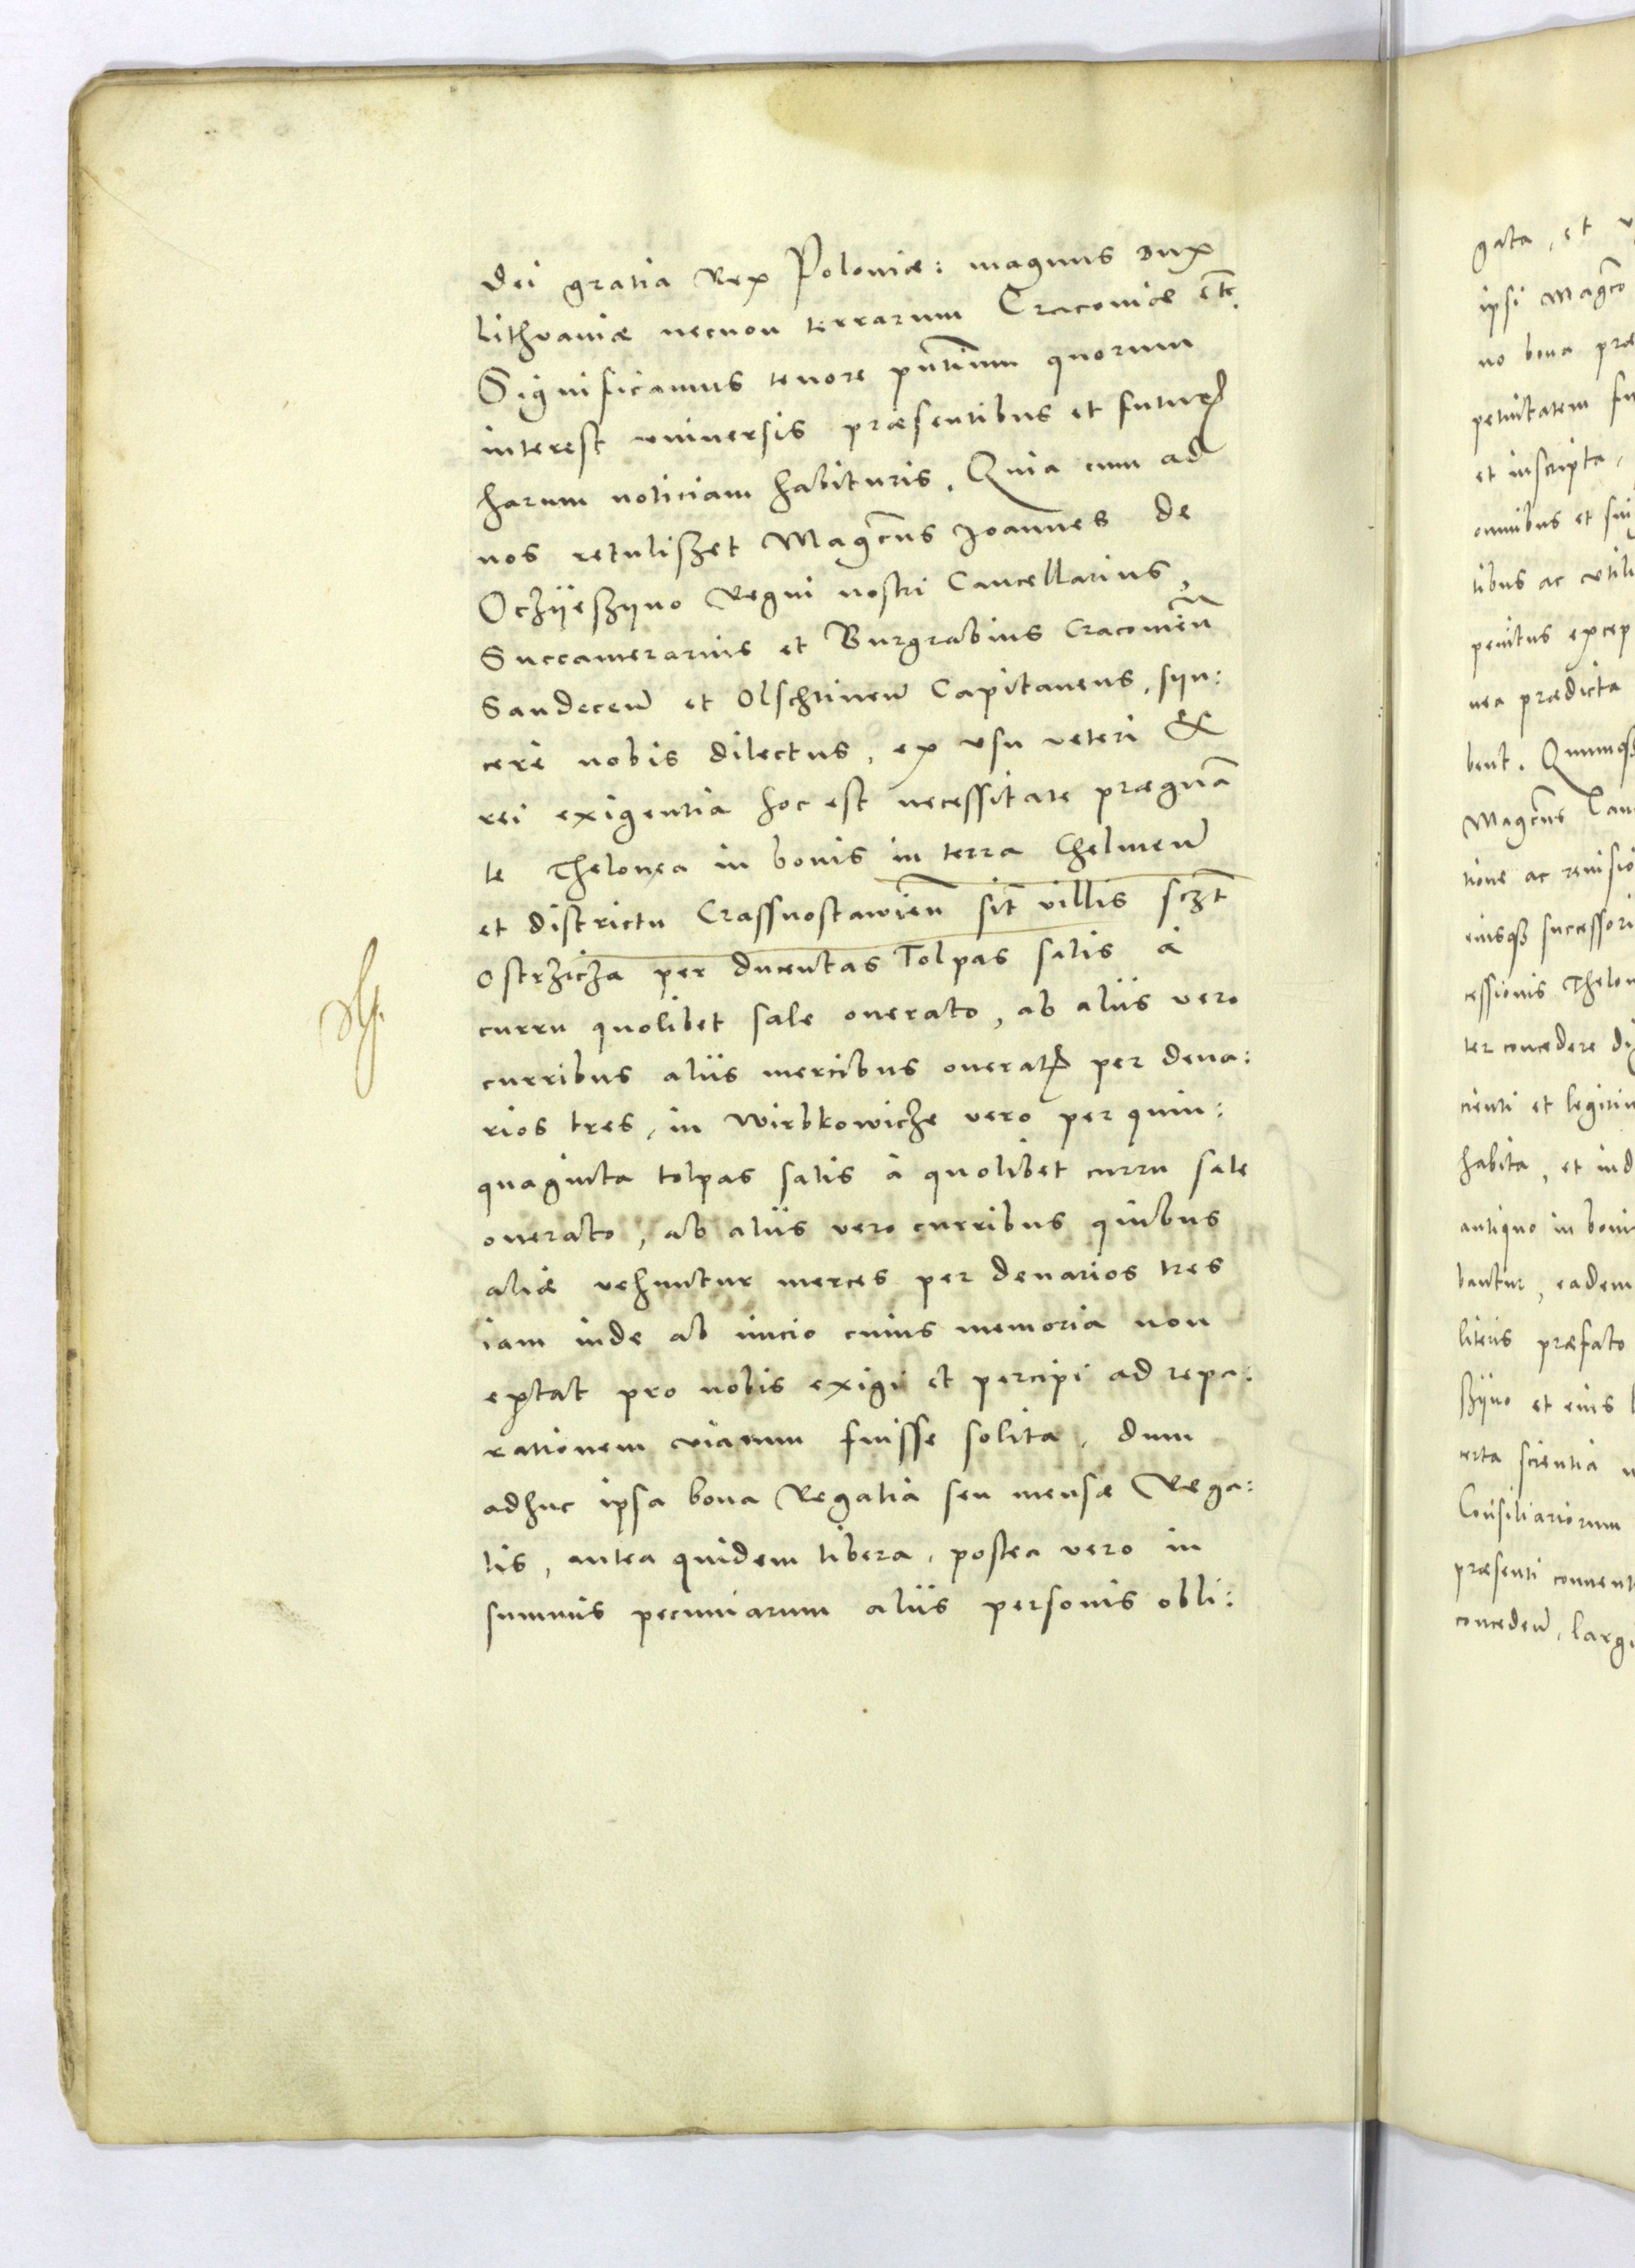 Dei gratia Rex Poloniæ: magnus Dux
Lithvaniæ necnon terrarum Cracoviæ etc.
Significamus tenore pñtium quorum
interest vniuersis præsentibus et futuris
harum noticiam habituris. Quia cum ad
nos retuliszet Magcus Joannes de
Oczÿeszÿno Regni nostri Cancellarius,
Succamerarius et Burgrabius Cracouieñ
Sandeceñ et Olschtineñ Capitaneus, sÿn:
cere nobis dilectus, ex vsu veteri &
rei exigentia hoc est necessitate prægnã
te Thelonea in bonis in terra Chelmeñ
et districtu Crassnostawieñ sit villis sczt
Ostrzicza per ducentas Tolpas salis à
curru quolibet sale onerato, ab aliis vero
curribus aliis mercibus oneratis per dena:
rios tres, in Wirbkowicze vero per quin:
quaginta tolpas salis à quolibet curru sale
onerato, ab aliis vero curribus quibus
aliæ vehuntur merces per denarios tres
iam inde ab inicio cuius memoria non
extat pro nobis exigi et percipi ad repa:
rationem viarum fuisse solita, dum
adhuc ipsa bona Regalia seu mensæ Rega:
lis, antea quidem libera, postea vero in
summis pecuniarum aliis personis obli:
gata, et
ipsi Magco
no bona præ
petuitatem fu
et inscripta,
omnibus et sin
tibus ac vtili
penitus excep
nea prædicta
bent. Quumqz
Magcus Can
tione ac reuisio
eiusqz successori
cessionis Thelon
ter concedere di
cienti et legitim
habita, et ind
antiquo in boni
bantur, eadem
literis præfato
szÿno et eius
certa scientia
Consiliariorum
præsenti conuent
concedeñ, largi